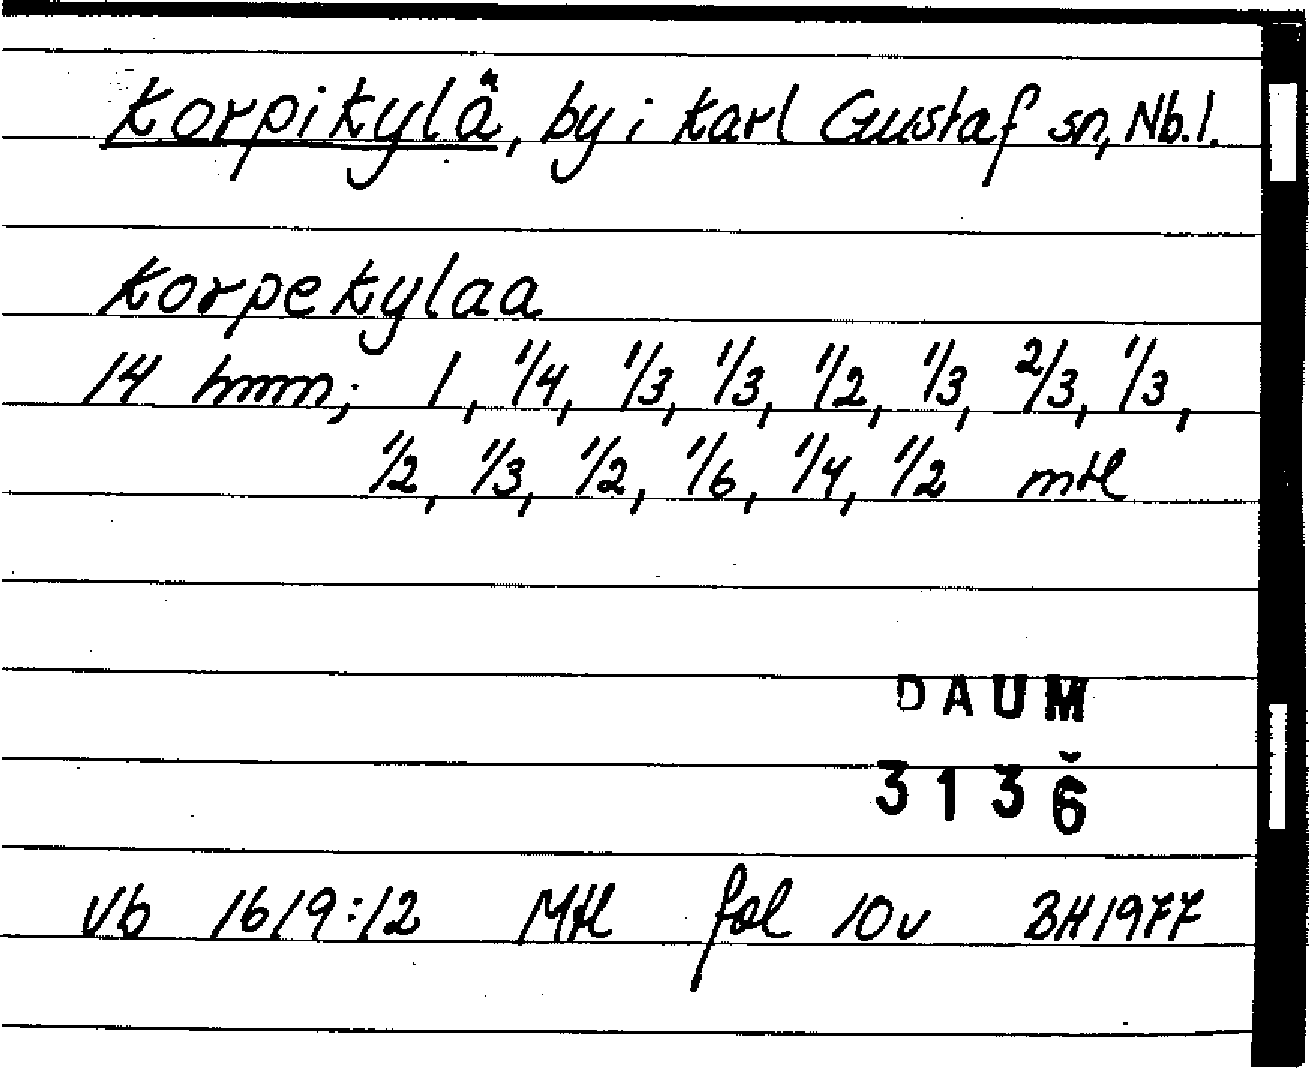 Korpikylä, by i Karl Gustaf sn, Nb. l.
Korpekylaa
14 hmn; 1, 1/4, 1/3, 1/3, 1/2, 1/3, 2/3, 1/3,
1/2, 1/3, 1/2, 1/6, 1/4, 1/2 mtl
DAUM
3136
Vb 1619:12 Mtl fol 10v BH1977